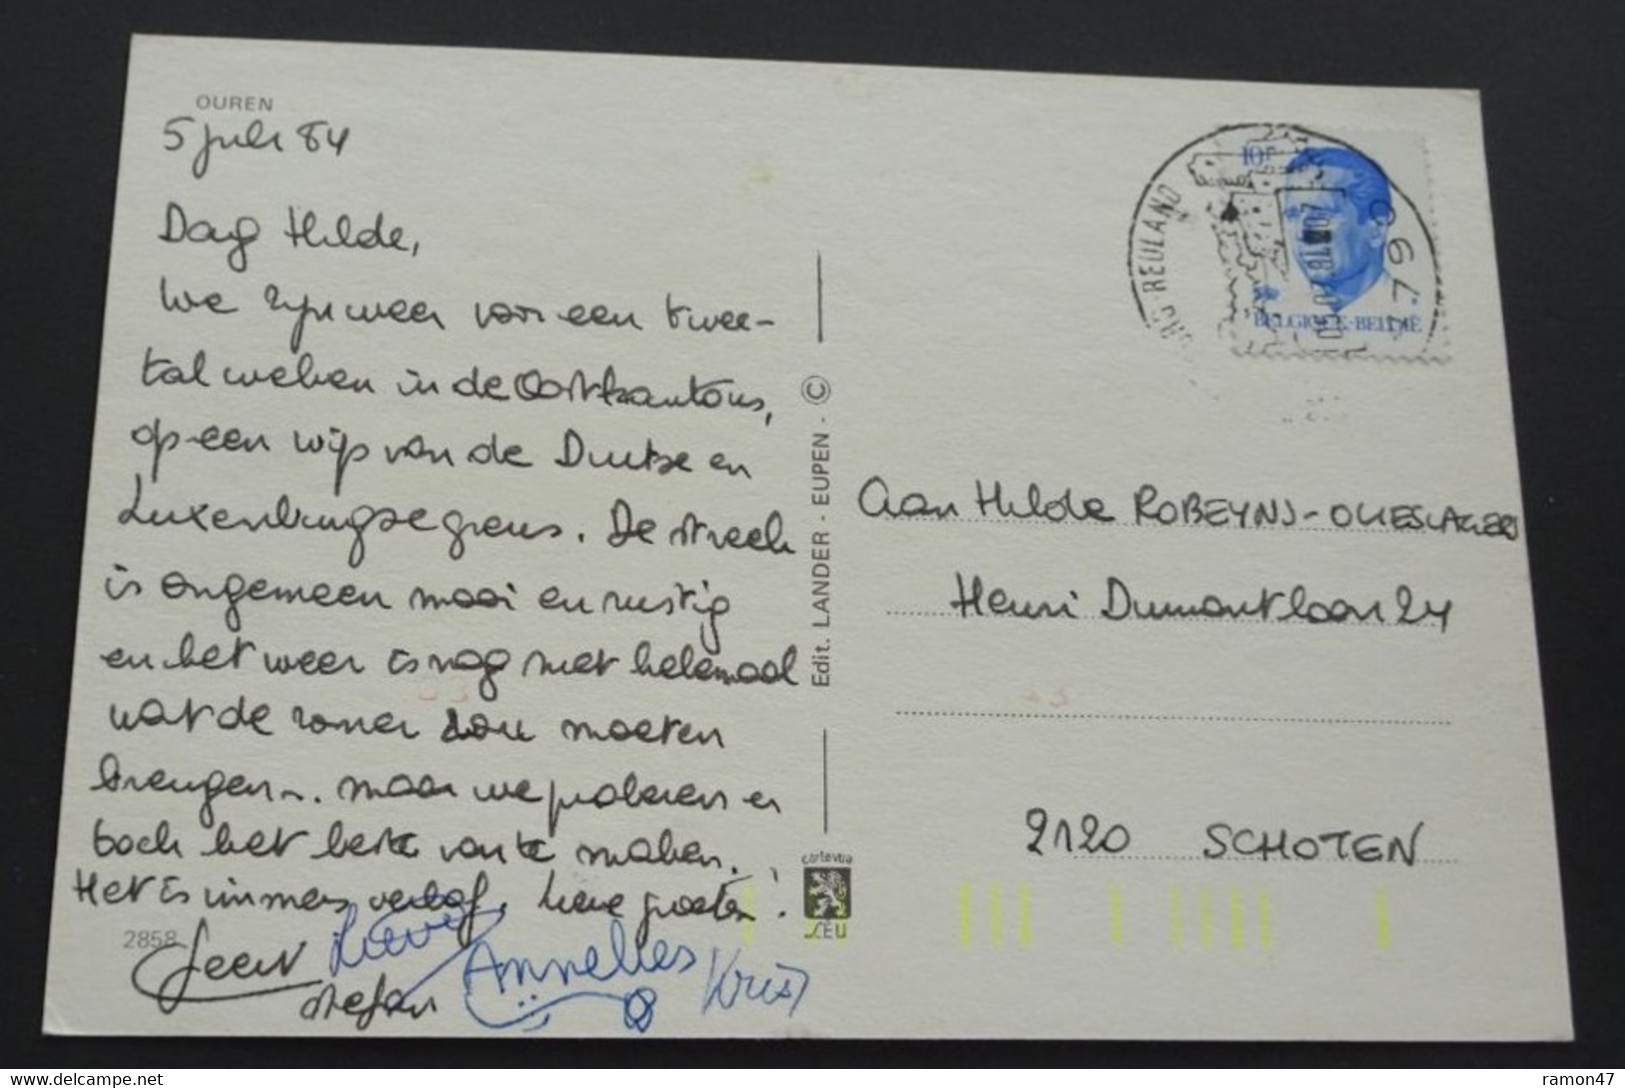 OUREN
5 juli 84
Dag Hilde,
We zijn weer voor een twee-
tal weken in de Oostkantons,
op een wip van de Duitse en
Luxemburgse grens. De streek
is ongemeen mooi en rustig
en het weer is nog niet helemaal
wat de zomer zou moeten
brengen... maar we proberen er
toch het beste van te maken.
Het is immers verlof. Lieve groeten!
2858
Geert Lieve Annelies Kris
Stefan
Edit. LANDER - EUPEN - ©
cartevue
LEU
REULAND
10F
BELGIQUE-BELGIË
Aan Hilde ROBEYNS-OLIESLAGERS
Henri Dunantlaan 24
2120 SCHOTEN
ramon47